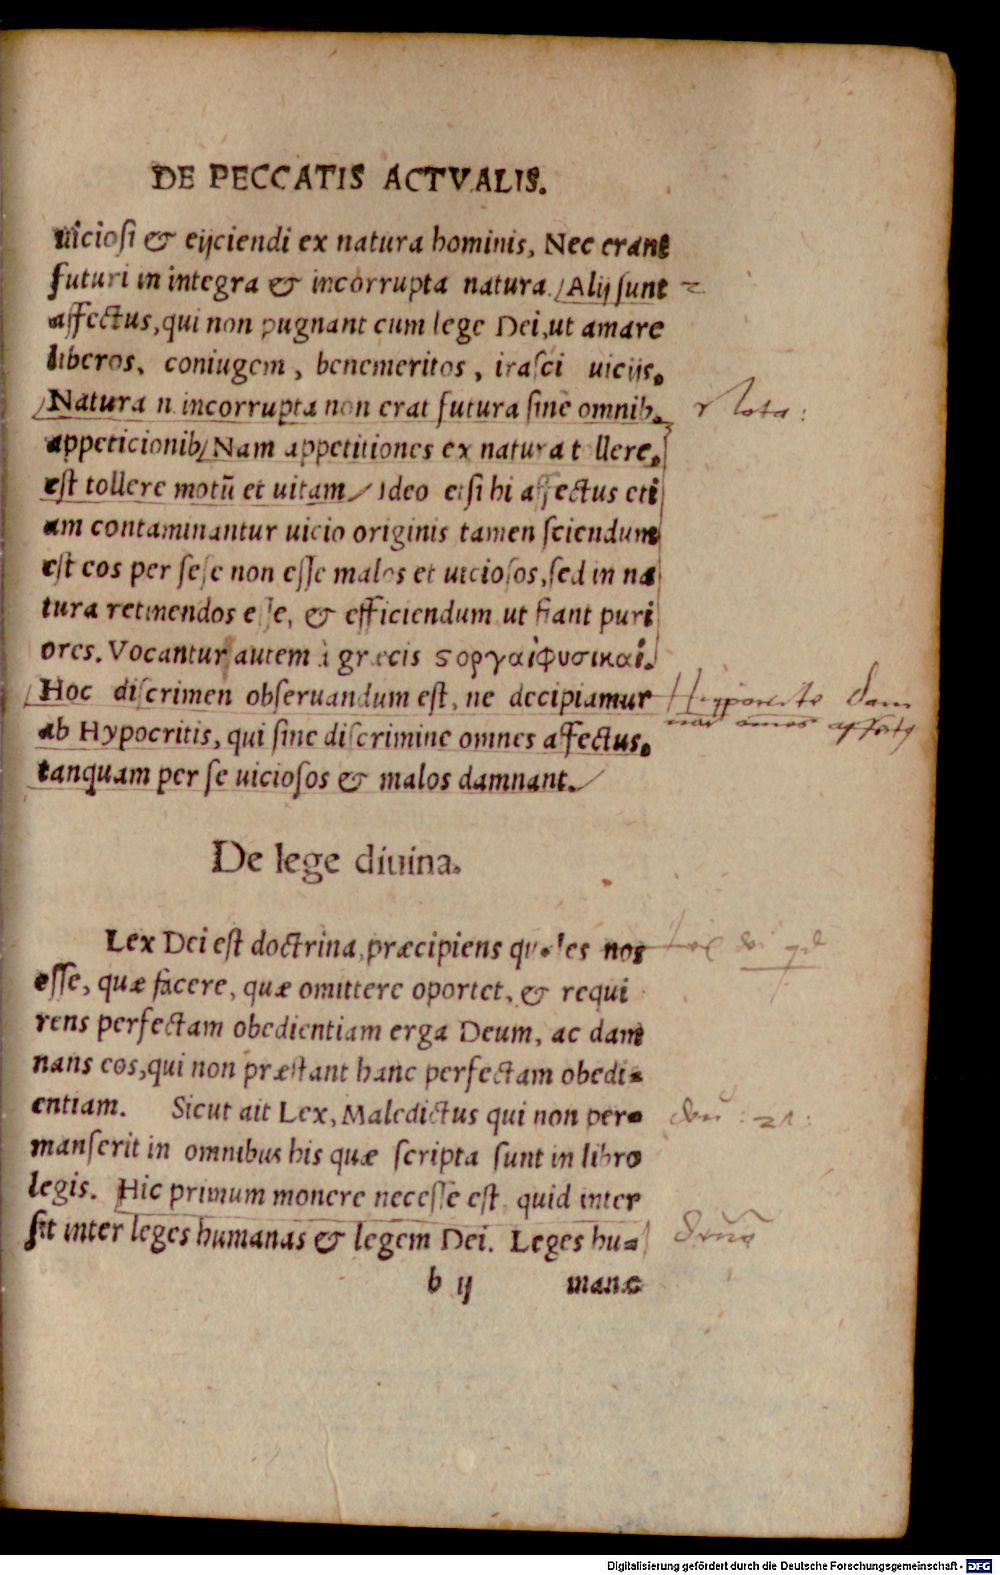 DE PECCATIS ACTVALIS.
uiciosi & eijciendi ex natura hominis, Nec erant
futuri in integra & incorrupta natura. Alij sunt
affectus, qui non pugnant cum lege Dei, ut amare
liberos, coniugem, benemeritos, irasci uicijs.
Natura n. incorrupta non erat futura sine omnib.
Nota:
appeticionib, Nam appetitiones ex natura tollere,
est tollere motū et uitam, Ideo etsi hi affectus eti
am contaminantur uicio originis tamen sciendum
est eos per sese non esse malos et uiciosos, sed in na
tura retinendos esse, & efficiendum ut fiant puri
ores. Vocantur autem à græcis ϛοργαὶφυσικαὶ.
Hoc discrimen obseruandum est, ne decipiamur
ab Hypocritis, qui sine discrimine omnes affectus,
tanquam per se uiciosos & malos damnant.
De lege diuina.
Lex Dei est doctrina, præcipiens quales nos
esse, quæ facere, quæ omittere oportet, & requi
rens perfectam obedientiam erga Deum, ac dam
nans eos, qui non præstant hanc perfectam obedi-
entiam. Sicut ait Lex, Maledictus qui non per-
manserit in omnibus his quæ scripta sunt in libro
legis. Hic primum monere necesse est, quid inter
sit inter leges humanas & legem Dei. Leges hu-
b ij manæ
Digitalisierung gefördert durch die Deutsche Forschungsgemeinschaft - DFG